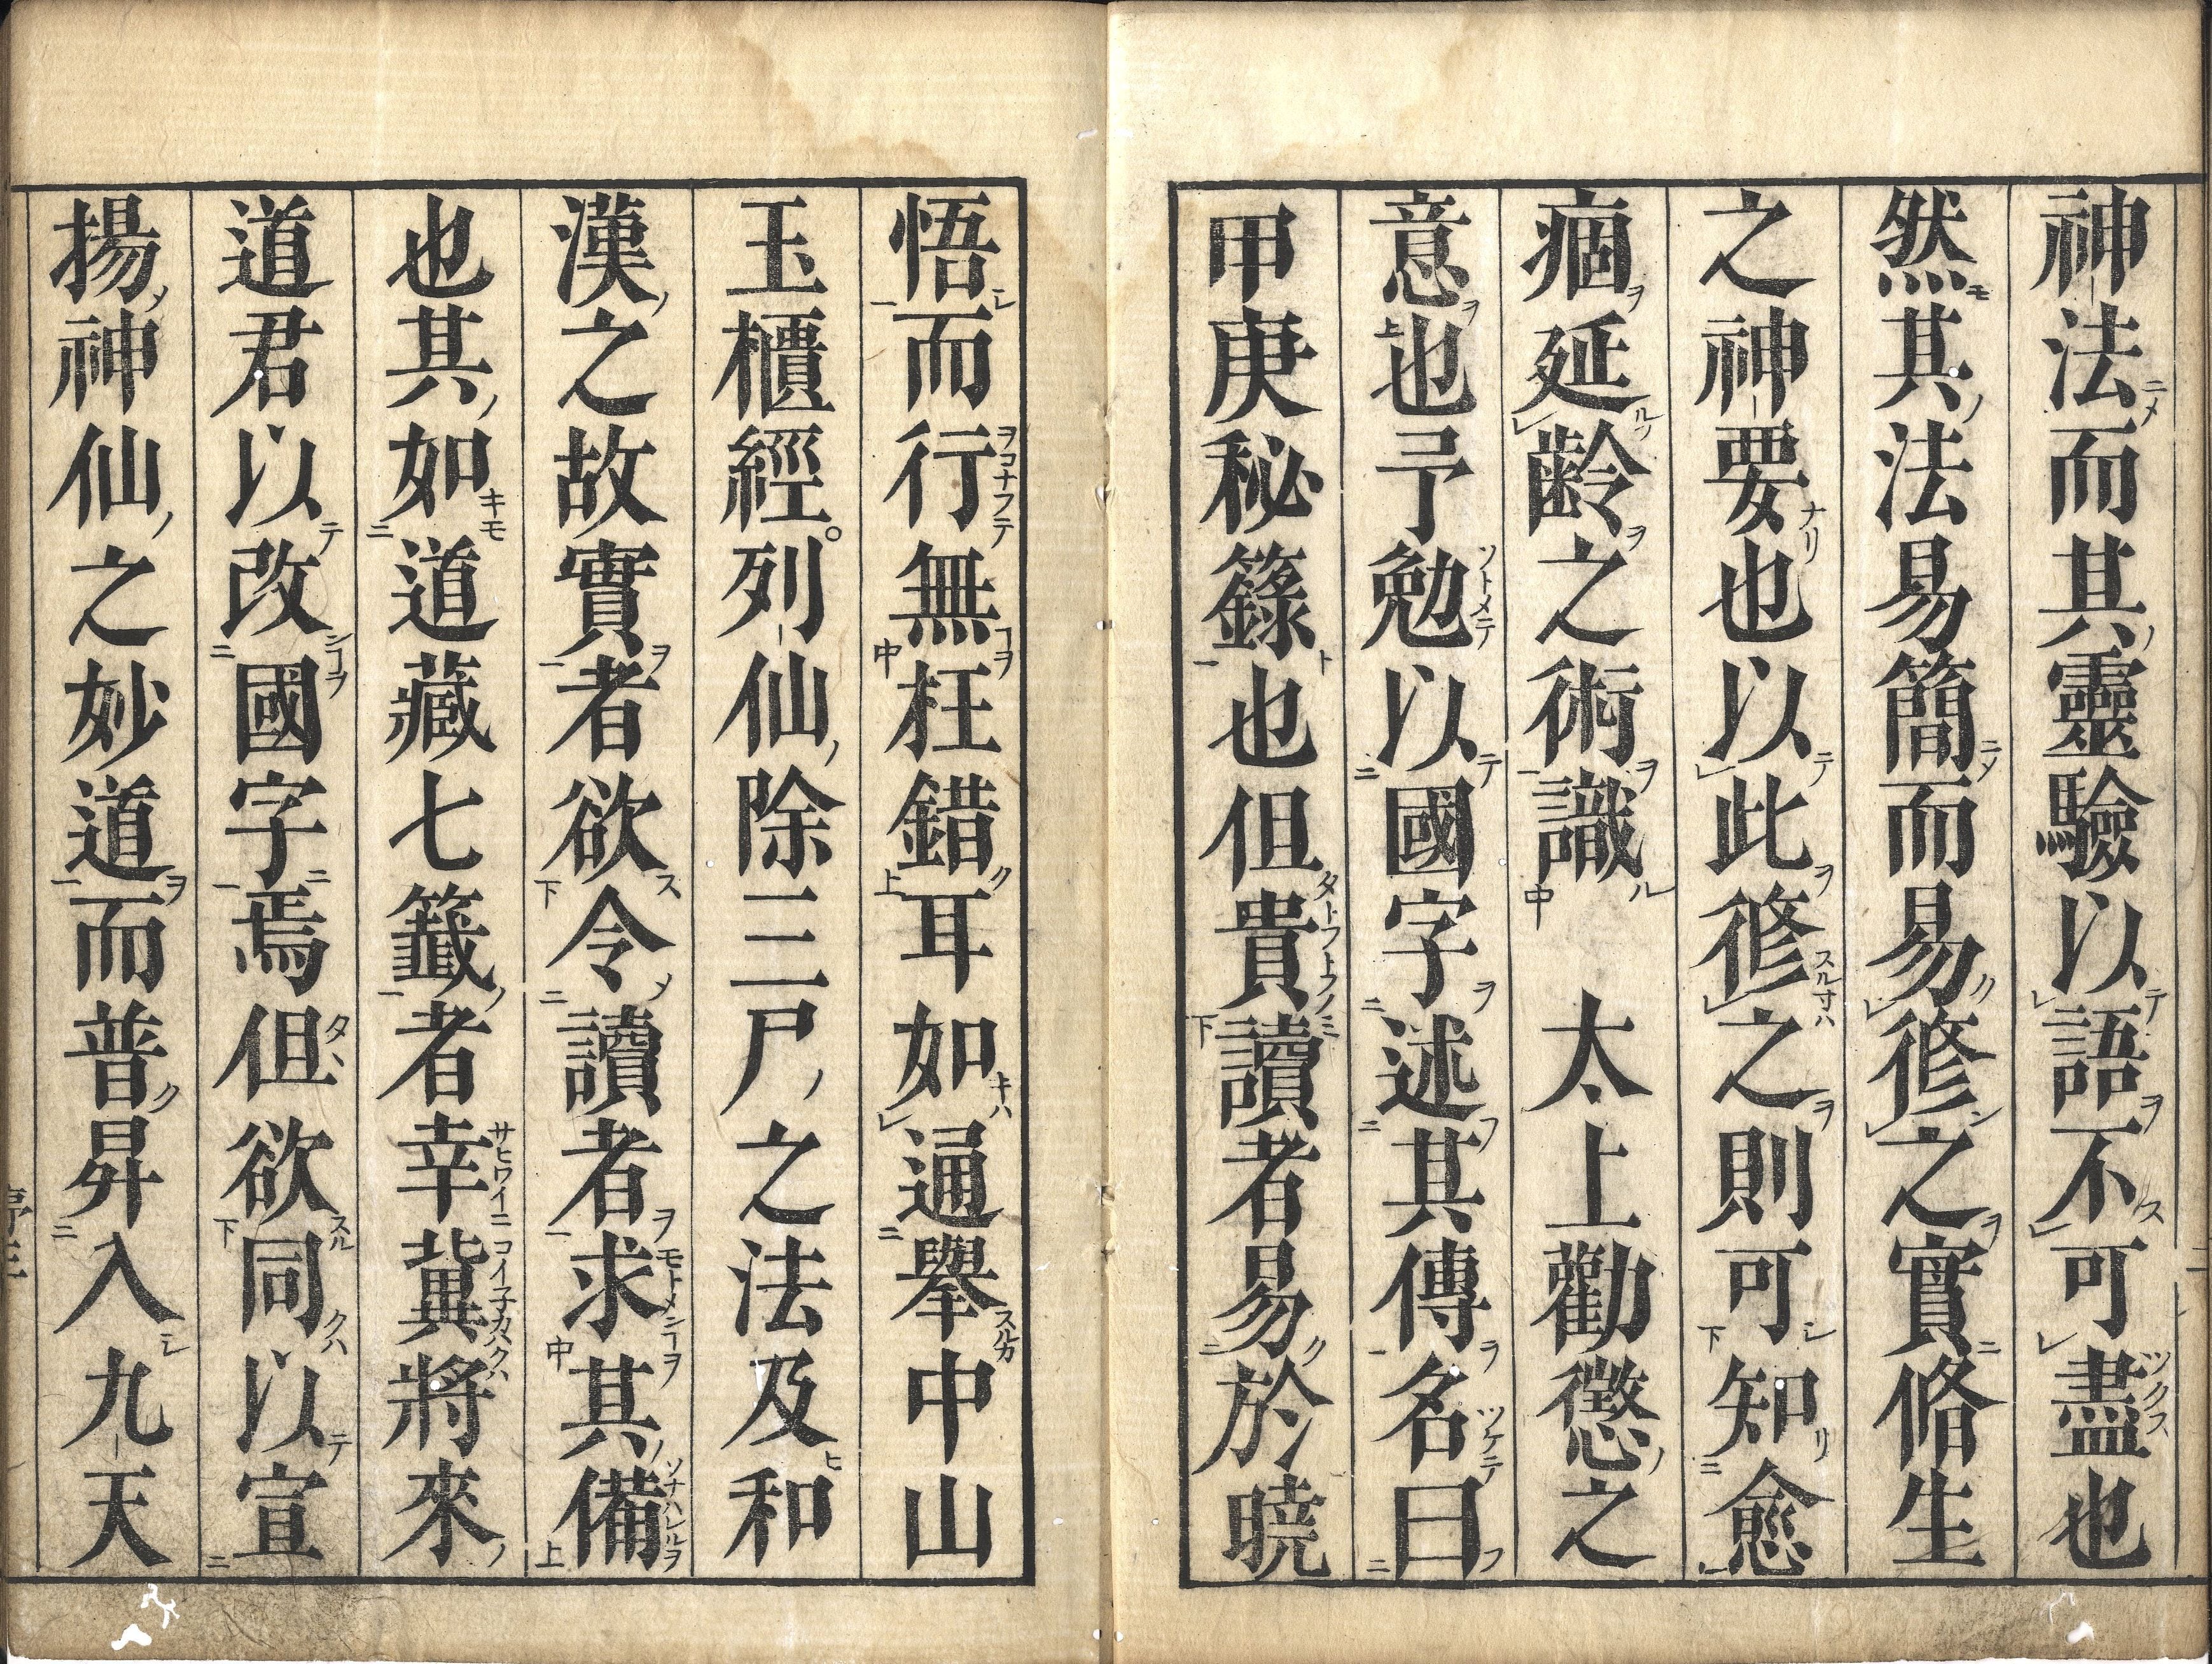 神法而其靈驗以語不可盡也
然其法易簡而易修之實脩生
之神要也以此修之則可知愈
痼延齢之術識 太上勸懲之
意也予勉以國字述其傳名曰
甲庚秘籙也但貴讀者易於暁
悟而行無枉錯耳如通舉中山
玉櫃經。列仙除三尸之法及和
漢之故實者欲令讀者求其備
也其如道藏七籤者幸冀將來
道君以改國字焉但欲同以宣
揚神仙之妙道而普昇入九天